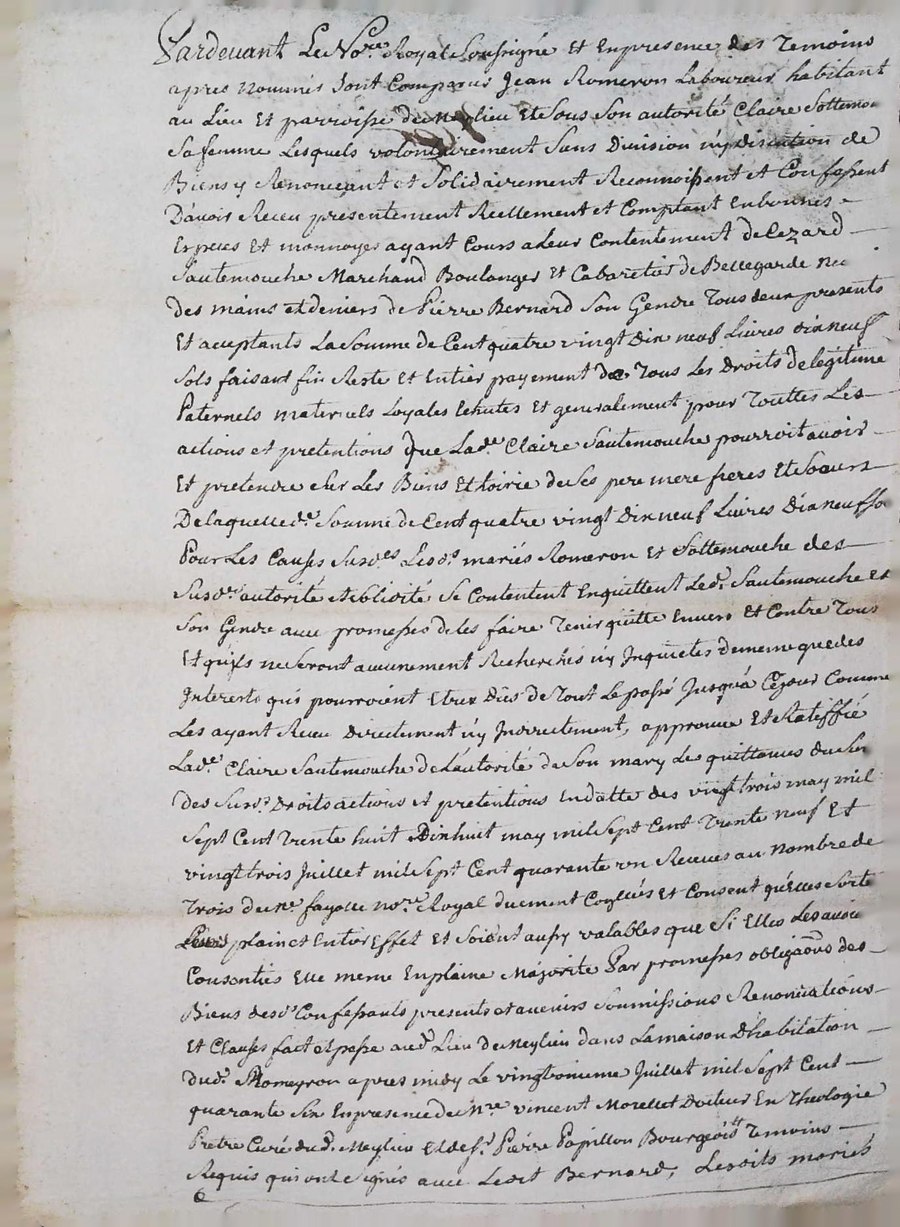 Pardevant Le No.re Royal Soussigné Et En presence des Temoins
apres nommés Sont Comparus Jean Romeron Laboureur habitant
au Lieu Et parroisse de Meylieu Et Sous Son autorité Claire Sottemou
Sa femme Lesquels volontairement Sans Division n'y discution de
Biens y Renonceant et Solidairement Reconnoissent et Confessent
D'avoir Receu presentement Reellement et Comptant En bonnes
Especes Et monnoyes ayant Cours a Leur Contentement de Cezard
Sautemouche Marchand Boulanger Et Cabaretier de Bellegarde
des mains et deniers de Pierre Bernard Son Gendre Tous deux presents
Et aceptants La Somme de Cent quatre vingt Dix neuf Livres dix neuf
Sols faisant fin Reste Et Entier payement de Tous Les Droits de Legitime
Paternels maternels Loyales Echutes Et generalement pour Touttes Les
actions et pretentions que Lad.e Claire Sautemouche pourroit avoir
Et pretendre Sur Les Biens Et hoirie de Ses pere mere freres Et Soeurs
De laquelle d.e Somme de Cent quatre vingt Dix neuf Livres Dix neuf so
Pour Les Causes Susd.es Les d.s mariés Romeron Et Sottemouche des
Susd.es autorité Solidité Se Contentent En quittent Led.t Sautemouche Et
Son Gendre avec promesses de les faire Tenir quitte Envers Et Contre Tous
Et qu'ils ne Seront aucunement Recherchés n'y Inquietes de meme que des
Interests qui pourroient Etres Dûs de Tout Le passé Jusqu'a Ce jour Comme
Les ayant Receu Directement n'y Indirectement, approuve Et Ratiffié
Lad.e Claire Sautemouche de L'autorité de Son mary Les quittances
des Susd.s Droits actions et pretentions En datte des vingt trois may mil
Sept Cent Trente huit Dixhuit may mil Sept Cent Trente neuf Et
vingt trois Juillet mil Sept Cent quarante un Receues au Nombre de
Trois de M.e fayolle No.re Royal duement Conllés Et Consent qu'Elles Sorte
plain et Entier Effet Et Soient aussy valables que Si Elles Les avoit
Consenties Elle meme En plaine Majorité Par promesses obligaôns des
Biens des d. Confessants presents et avenirs Soumissions Renonciations
Et Clauses fact et passe aud. Lieu de Meylieu dans La maison D'habitation
dud. Romeyron apres midy Le vingt onieme Juillet mil Sept Cent
quarante Six En presence de M.re vincent Morellet Docteur En Theologie
Pretre Curé dud. Meylieu Et de S.r Pierre Papillon Bourgeois Temoins
Requis qui ont Signés avec Ledit Bernard, Les dits mariés